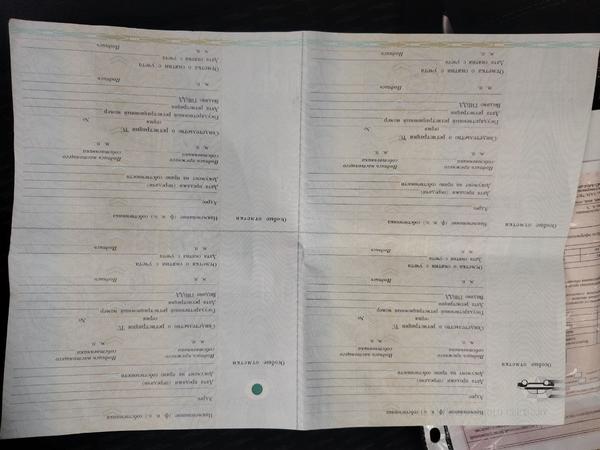 Особые отметки
Наименование (ф. и. о.) собственника
Адрес
Дата продажи (передачи)
Документ на право собственности
Подпись прежнего собственника
Подпись настоящего собственника
М. П. М. П.
Свидетельство о регистрации ТС
серия №
Государственный регистрационный номер
Дата регистрации
Выдано ГИБДД
М. П. Подпись
Отметка о снятии с учета
Дата снятия с учета
М. П. Подпись
Особые отметки
Наименование (ф. и. о.) собственника
Адрес
Дата продажи (передачи)
Документ на право собственности
Подпись прежнего собственника
Подпись настоящего собственника
М. П. М. П.
Свидетельство о регистрации ТС
серия №
Государственный регистрационный номер
Дата регистрации
Выдано ГИБДД
М. П. Подпись
Отметка о снятии с учета
Дата снятия с учета
М. П. Подпись
Особые отметки
Наименование (ф. и. о.) собственника
Адрес
Дата продажи (передачи)
Документ на право собственности
Подпись прежнего собственника
Подпись настоящего собственника
М. П. М. П.
Свидетельство о регистрации ТС
серия №
Государственный регистрационный номер
Дата регистрации
Выдано ГИБДД
М. П. Подпись
Отметка о снятии с учета
Дата снятия с учета
М. П. Подпись
Особые отметки
Наименование (ф. и. о.) собственника
Адрес
Дата продажи (передачи)
Документ на право собственности
Подпись прежнего собственника
Подпись настоящего собственника
М. П. М. П.
Свидетельство о регистрации ТС
серия №
Государственный регистрационный номер
Дата регистрации
Выдано ГИБДД
М. П. Подпись
Отметка о снятии с учета
Дата снятия с учета
М. П. Подпись